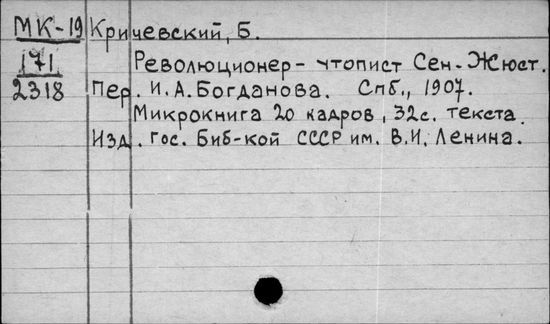 МК-19 Кричевский, Б.
171 Революционер - утопист Сен-Жюст.
2318 Пер. И.А.Богданова. Спб., 1907.
Микрокнига 20 кадров, 32с. текста.
Изд. Гос. Биб-кой СССР им. В.И. Ленина.